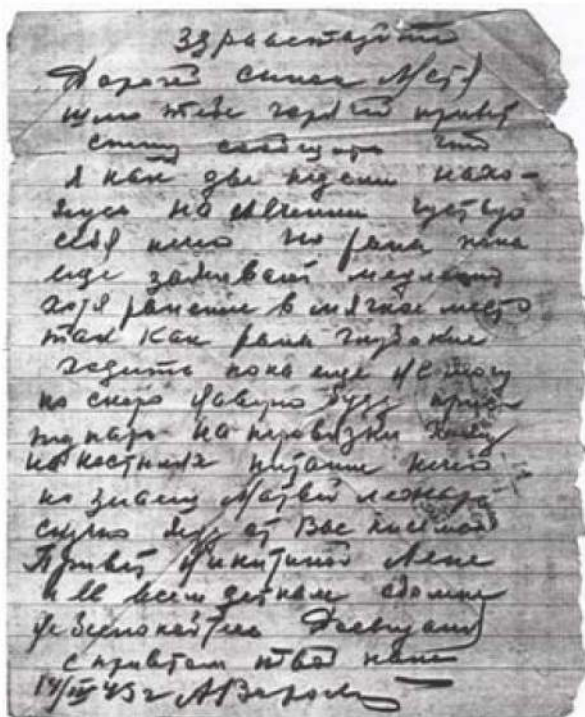 Здравствуйте
Дорогой сынок Мотя
шлю тебе горячий привет
спешу сообщить что
я как две недели нахо-
жусь на лечении чуствую
себя ничего но рана пока
еще заживает медленно
хотя ранение в мягкое место
так как рана глубокие
ходить пока еще не могу
но скоро буду
на перевязки хожу
на костылях питание ничего
но знаеш Матвей лежать
скучно жду от Вас писем
Привет Никитиной Лене
и ее всем деткам обо мне
не беспокойтесь Досвидания
с приветом твой папа
14/III 43г